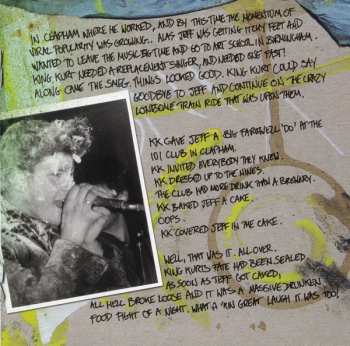 IN CLAPHAM WHERE HE WORKED, AND BY THIS TIME THE MOMENTUM OF
VIRAL POPULARITY WAS GROWING.. ALAS JEFF WAS GETTING ITCHY FEET AND
WANTED TO LEAVE THE MUSIC BIG TIME AND GO TO ART SCHOOL IN BIRMINGHAM.
KING KURT NEEDED A REPLACEMENT SINGER, AND NEEDED ONE FAST!
ALONG CAME THE SMEG, THINGS LOOKED GOOD. KING KURT COULD SAY
GOODBYE TO JEFF AND CONTINUE ON THE CRAZY
LONESOME TRAIN RIDE THAT WAS UPON THEM.
KK GAVE JEFF A BIG FAREWELL 'DO' AT THE
101 CLUB IN CLAPHAM.
KK INVITED EVERYBODY THEY KNEW.
KK DRESSED UP TO THE NINES.
THE CLUB HAD MORE DRINK THAN A BREWERY.
KK BAKED JEFF A CAKE.
OOPS.
KK COVERED JEFF IN THE CAKE.
WELL, THAT WAS IT. ALL OVER.
KING KURTS FATE HAD BEEN SEALED
AS SOON AS JEFF GOT CAKED,
ALL HELL BROKE LOOSE AND IT WAS A MASSIVE DRUNKEN
FOOD FIGHT OF A NIGHT. WHAT A 'KIN GREAT LAUGH IT WAS TOO!